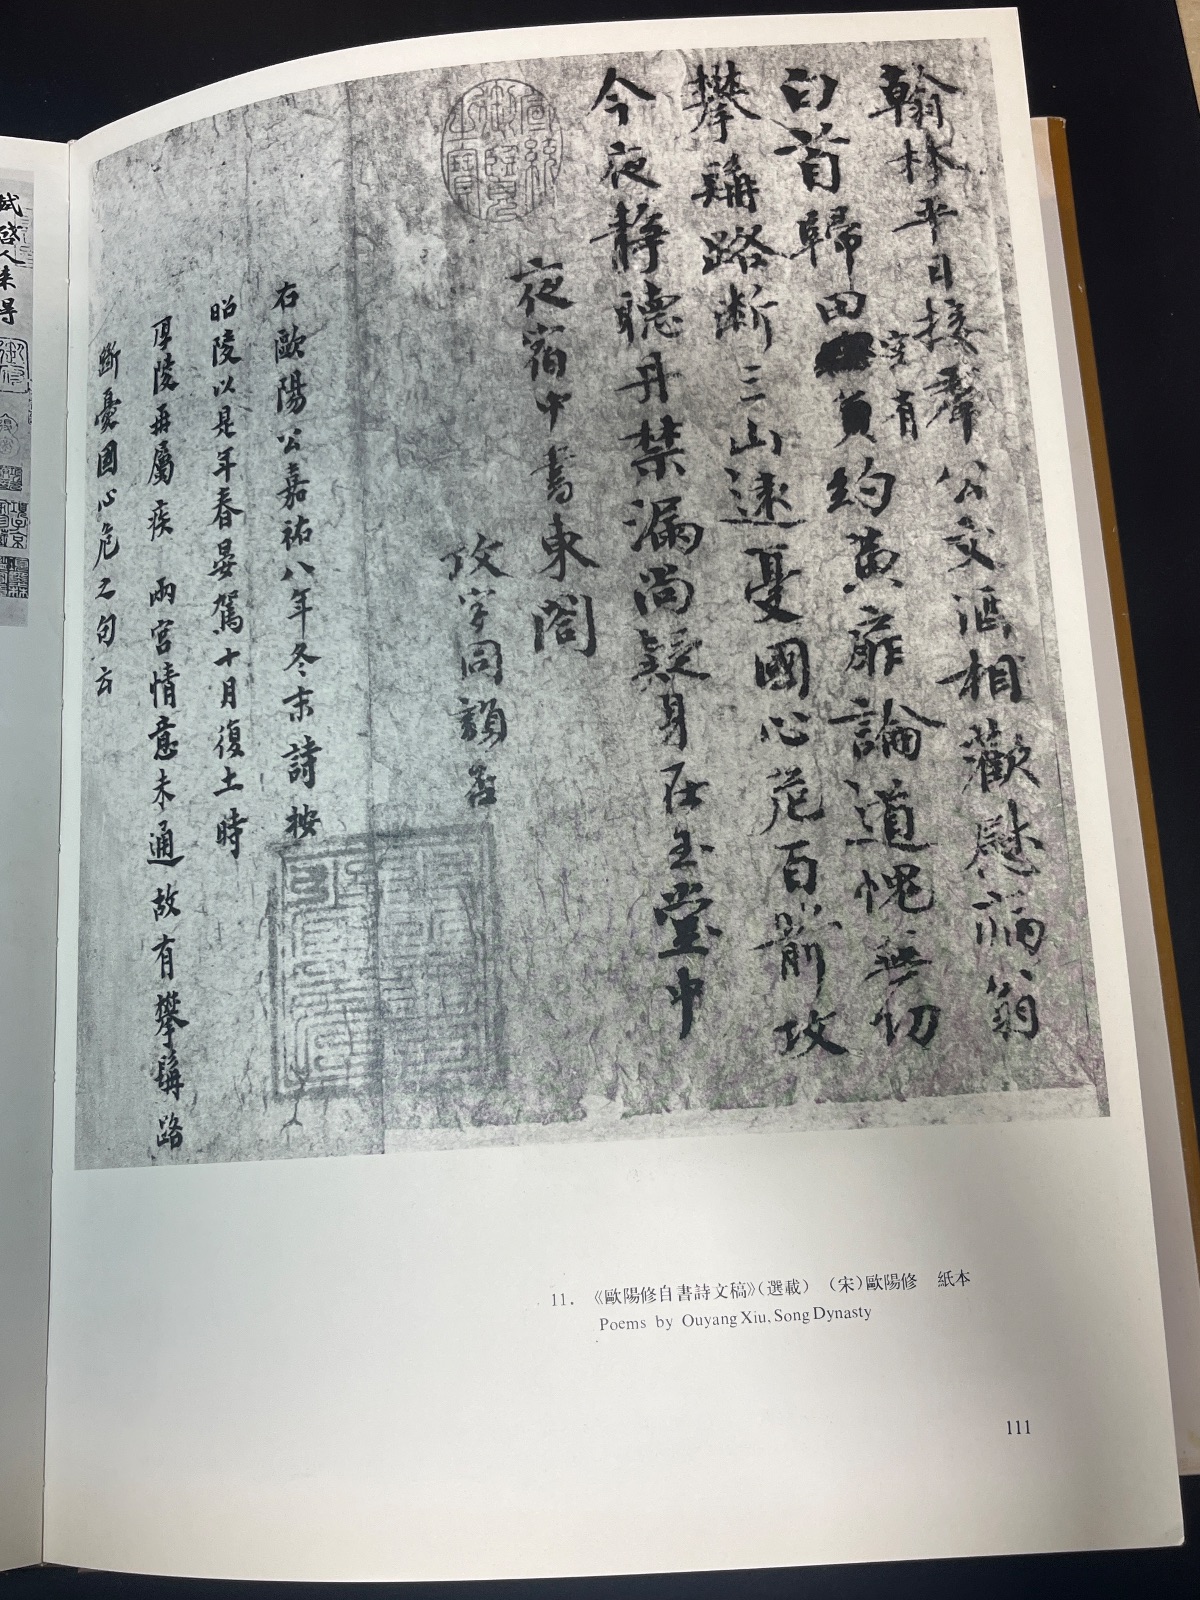 翰林平日接羣公文酒相歡慰病翁
空有
白首歸田負約黃扉論道愧無功
攀髯路斷三山遠憂國心危百箭攻
今夜靜聽丹禁漏尚疑身在玉堂中
夜宿中書東閣
攻字同韻否
宣統御覽之寶
右歐陽公嘉祐八年冬末詩按
昭陵以是年春晏駕十月復土時
厚陵再屬疾 兩宮情意未通故有攀髯路
斷憂國心危之句云
軾啓人來得
11. 《歐陽修自書詩文稿》(選載) (宋)歐陽修 紙本
Poems by Ouyang Xiu, Song Dynasty
111